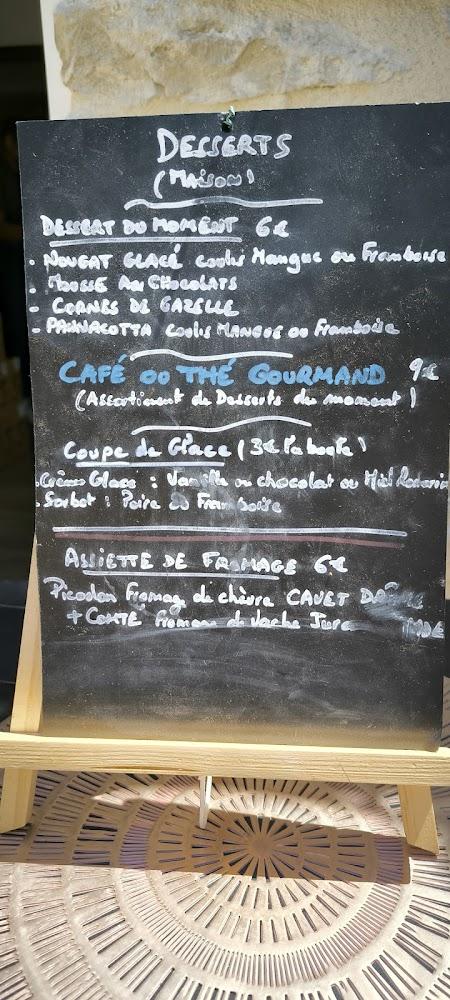 DESSERTS
(MAISON)
DESSERT DU MOMENT 6€
- NOUGAT GLACÉ coulis Mangue ou Framboise
- MOUSSE AU CHOCOLATS
- CORNES DE GAZELLE
- PANNACOTTA coulis MANGUE ou Framboise
CAFÉ OU THÉ GOURMAND 9€
(Assortiment de Desserts du moment)
Coupe de Glace (3€ la boule)
- Crème Glace : Vanille ou chocolat ou Miel Romarin
- Sorbet : Poire ou Framboise
ASSIETTE DE FROMAGE 6€
Picodon fromage de chèvre CAVET
+ COMTÉ fromage de Vache Jura